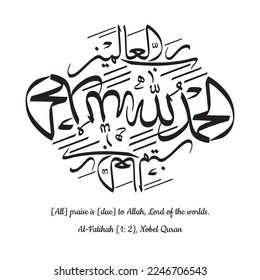 الحمد لله
رب العالمين
[All] praise is [due] to Allah, Lord of the worlds.
Al-Fatihah [1: 2], Nobel Quran
shutterstock.com · 2246706543